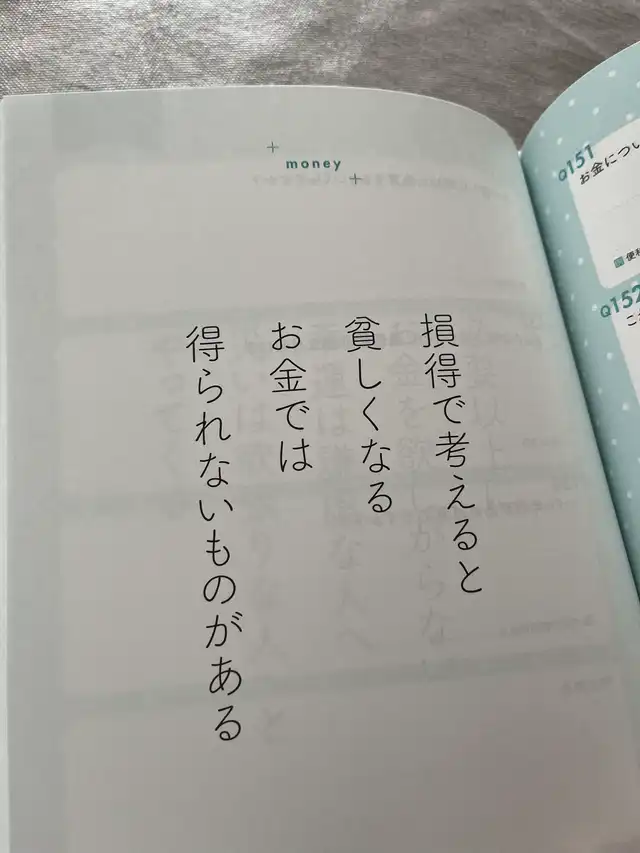 money
損得で考えると
貧しくなる
お金では
得られないものがある
Q151
お金につい
Q152